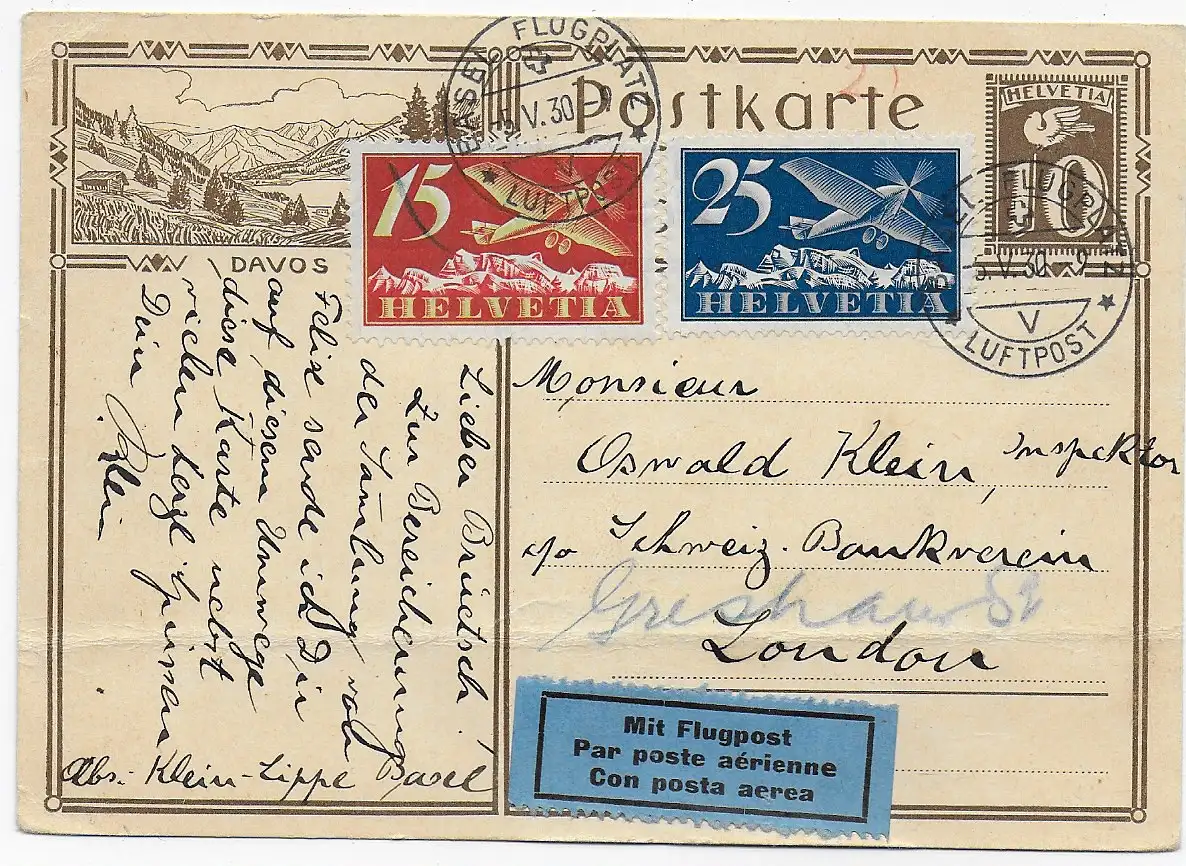 Postkarte
HELVETIA
10
BASEL FLUGPLATZ
V.30-9
V
LUFTPOST
15
HELVETIA
25
HELVETIA
BASEL FLUGPLATZ
5.V.30-9
V
LUFTPOST
DAVOS
Lieber Brüetsch!
Zur Bereicherung
der Samlung von
Felise sende ich Dir
auf diesem Umwege
diese Karte nebst
vielen herzl. Grüssen
Dein
Klein
Abs.: Klein-Lippe Basel
Monsieur
Oswald Klein, Inspektor
c/o Schweiz. Bankverein
Gresham St
London
Mit Flugpost
Par poste aérienne
Con posta aerea